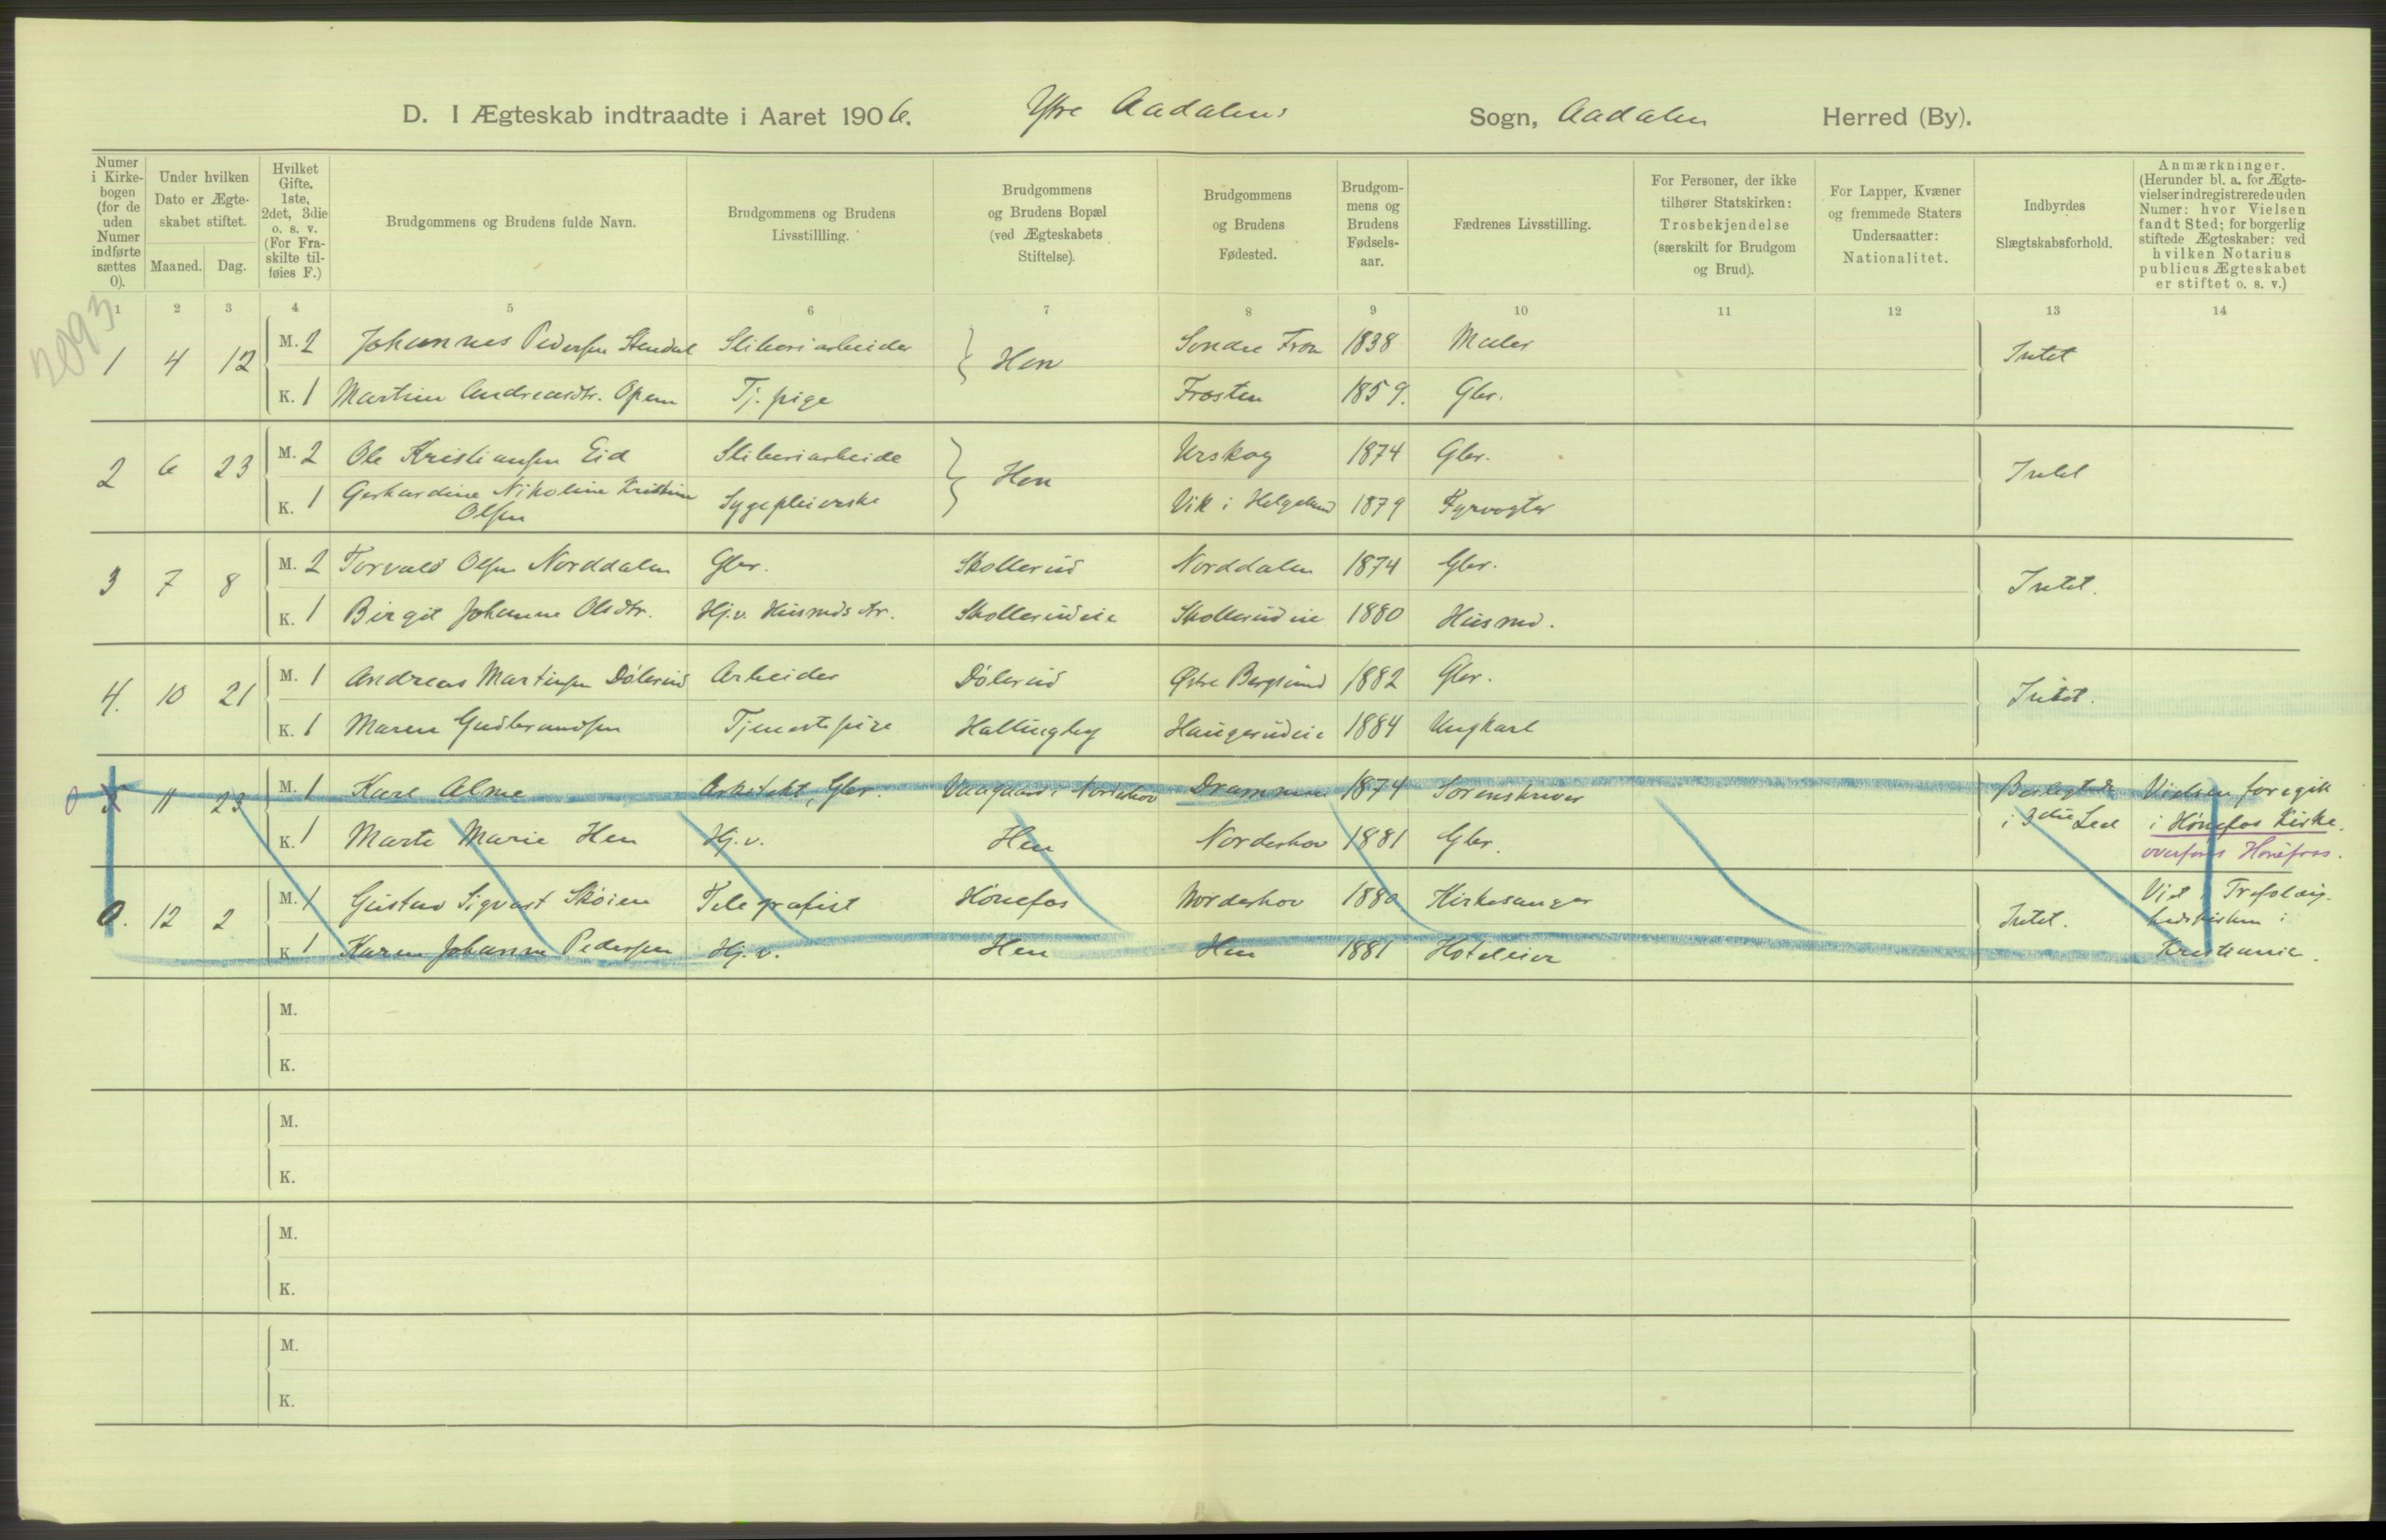 D. I Ægteskab indtraadte i Aaret 1906. Ytre Aadalens Sogn, Aadalen Herred (By).
Numer i Kirkebogen (for de uden Numer indførte sættes 0).
Under hvilken Dato er Ægteskabet stiftet.
Maaned. Dag.
Hvilket Gifte. 1ste, 2det, 3die o. s. v. (For Fraskilte tilføies F.)
Brudgommens og Brudens fulde Navn.
Brudgommens og Brudens Livsstillling.
Brudgommens og Brudens Bopæl (ved Ægteskabets Stiftelse).
Brudgommens og Brudens Fødested.
Brudgommens og Brudens Fødselsaar.
Fædrenes Livsstilling.
For Personer, der ikke tilhører Statskirken: Trosbekjendelse (særskilt for Brudgom og Brud).
For Lapper, Kvæner og fremmede Staters Undersaatter: Nationalitet.
Indbyrdes Slægtskabsforhold.
Anmærkninger. (Herunder bl. a. for Ægtevielser indregistrerede uden Numer: hvor Vielsen fandt Sted; for borgerlig stiftede Ægteskaber: ved hvilken Notarius publicus Ægteskabet er stiftet o. s. v.)
1 2 3 4 5 6 7 8 9 10 11 12 13 14
2093
1 4 12 M. 2 Johannes Pedersen Stendal Sliberiarbeider Hen Søndre Fron 1838 Maler Intet
K. 1 Martine Andreasdtr. Opem Tj. pige Frosten 1859. Gbr.
2 6 23 M. 2 Ole Kristiansen Eid Sliberiarbeide Hen Urskog 1874 Gbr. Intet
K. 1 Gerhardine Nikoline Kristine
Olsen Sygepleierske Vik i Helgeland 1879 Fyrvogter
3 7 8 M. 2 Torvald Olsen Norddalen Gbr. Skollerud Norddalen 1874 Gbr. Intet.
K. 1 Birgit Johanne Olsdtr. Hj.v. Husmds dtr. Skollerudeie Skollerudeie 1880 Husmd.
4. 10 21 M. 1 Andreas Martinsen Dölerud Arbeider Dölerud Østre Bergsund 1882 Gbr. Intet.
K. 1 Maren Gudbrandsen Tjenestepige Hallingby Haugerudeie 1884 Ungkarl
0 5 11 23 M. 1 Karl Alme Arkitekt, Gbr. Vaagaard i Norderhov Drammen 1874 Sorenskriver Beslegtede Vielsen foregik
K. 1 Marte Marie Hen Hj.v. Hen Norderhov 1881 Gbr. i 3die Led i Hönefos Kirke.
overføres Hønefoss.
0. 12 2 M. 1 Gustav Sigvart Skøien Telegrafist Hönefos Norderhov 1880 Kirkesanger Intet. Viet i Trefoldig-
hedskirken i
K 1 Karen Johanne Pedersen Hj.v. Hen Hen 1881 Hoteleier Kristiania.
M.
K.
M.
K.
M.
K.
M.
K.